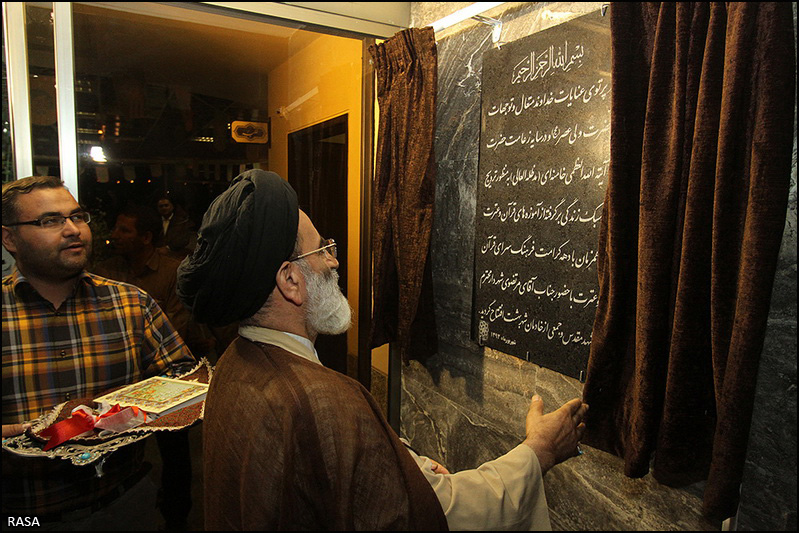 بسم الله الرحمن الرحیم
پرتوی عنایات خداوند متعال و توجهات
حضرت ولی عصر و در سایه زعامت حضرت
آیة الله العظمی خامنه‌ای (مدظله العالی) به منظور ترویج
سبک زندگی برگرفته از آموزه‌های قرآن و عترت
همزمان با دهه کرامت فرهنگ سرای قرآن
عترت با حضور جناب آقای مرتضوی شهردار محترم
مشهد مقدس و جمعی از خادمان شهر بهشت افتتاح گردید.
شهریور ماه ۱۳۹۳
RASA